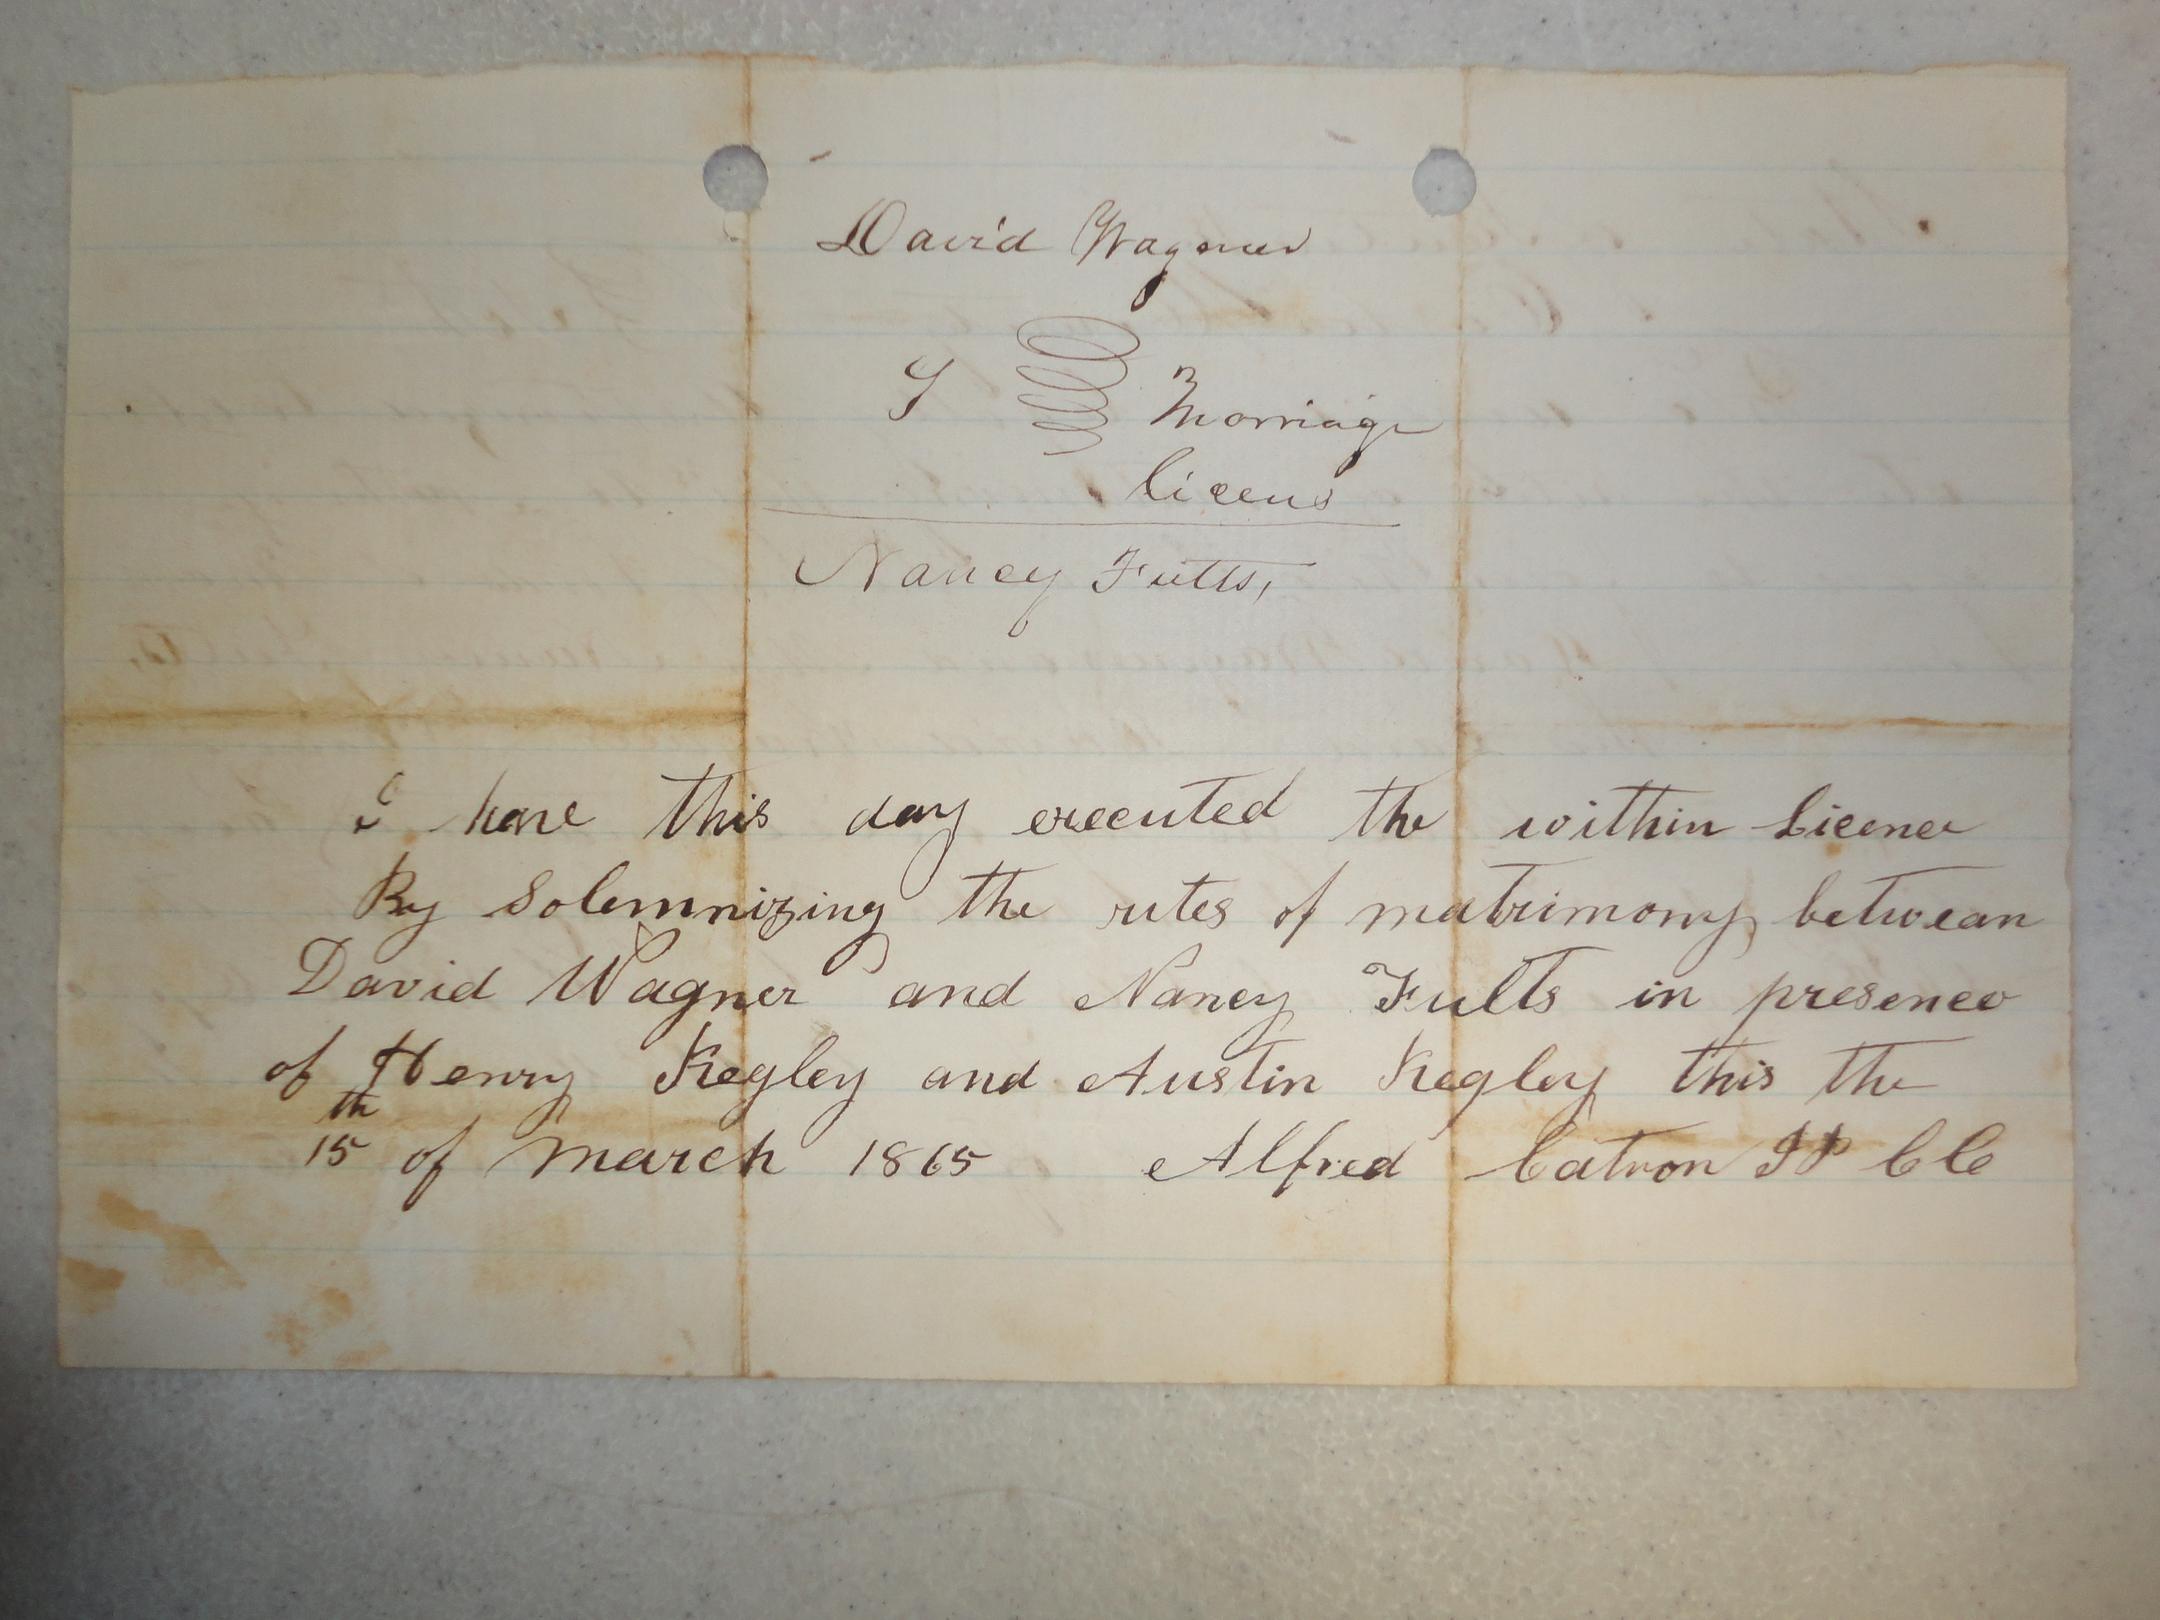 David Wagner
Marriage
licens
Nancy Fults,
I have this day executed the within Licence
By Solemnizing the rites of matrimony between
David Wagner and Nancy Fults in presence
of Henry Kegley and Austin Kegley this the
15th of march 1865 Alfred Catron JP CCo